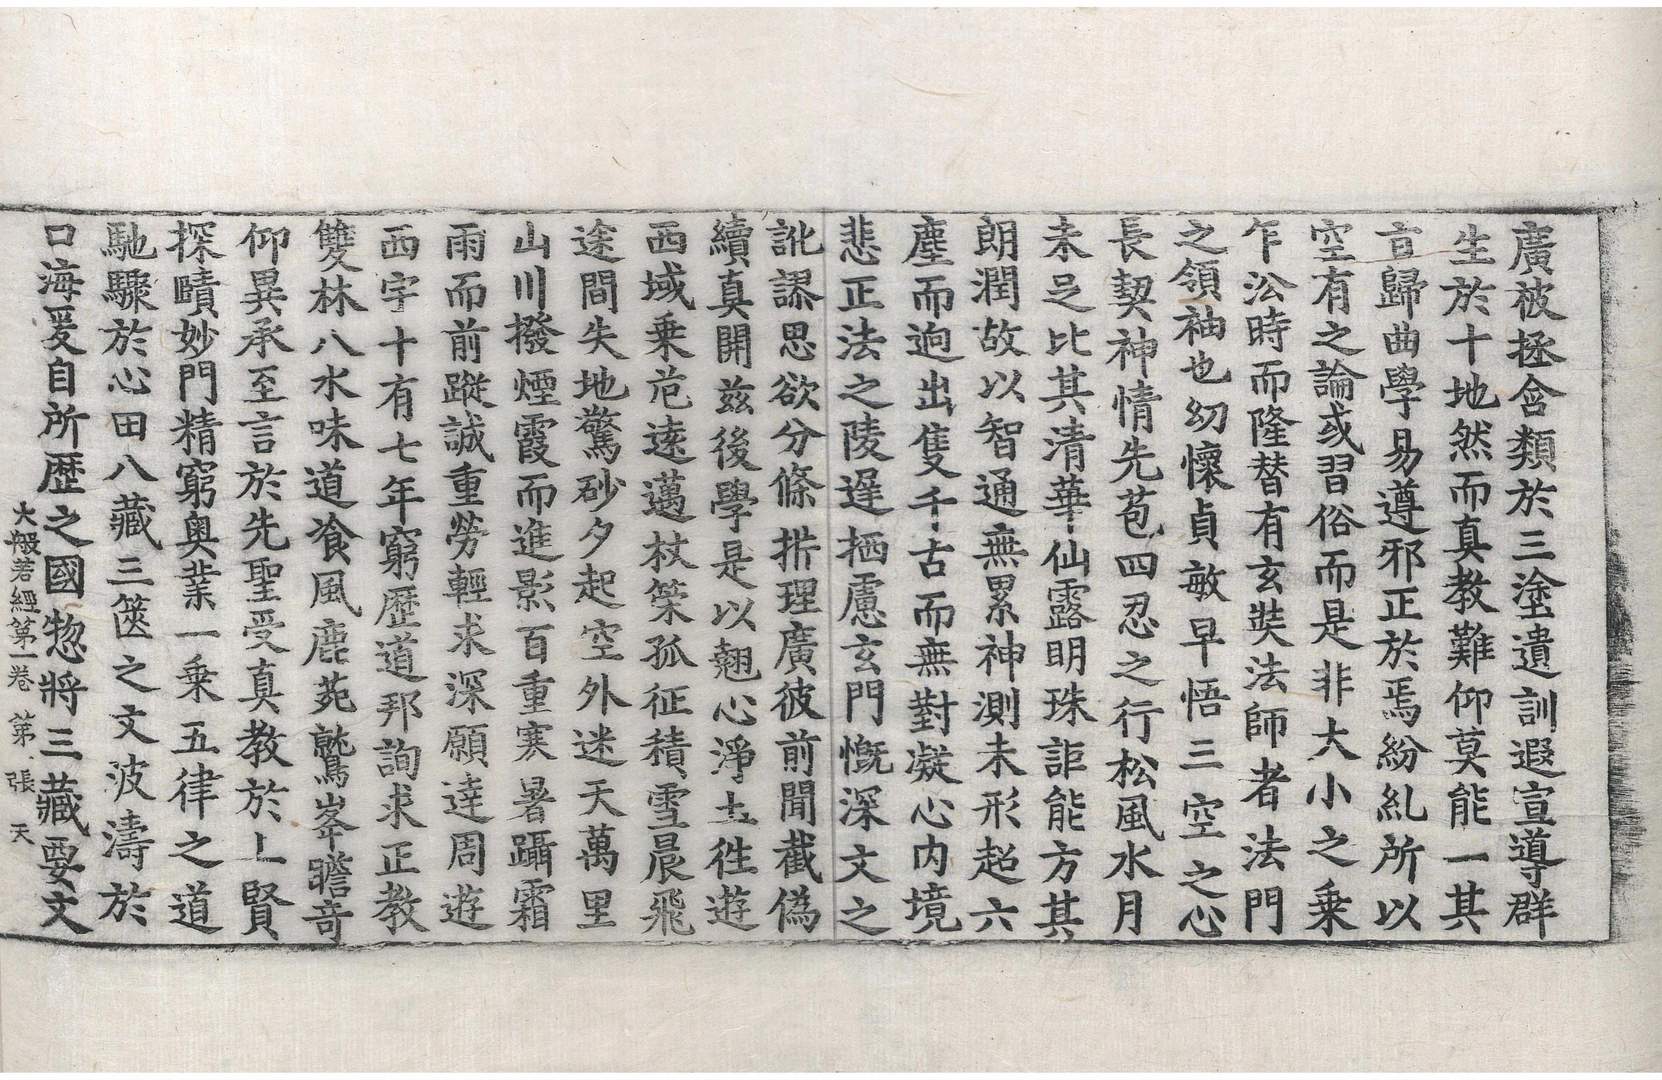 廣被拯含類於三塗遺訓遐宣導群
生於十地然而真教難仰莫能一其
㫖歸曲學易遵邪正於焉紛糺所以
空有之論或習俗而是非大小之乗
乍㳂時而隆替有玄奘法師者法門
之領袖也幼懷貞敏早悟三空之心
長契神情先苞四忍之行松風水月
未足比其清華仙露明珠詎能方其
朗潤故以智通無累神測未形超六
塵而逈出隻千古而無對凝心内境
悲正法之陵遲栖慮玄門慨深文之
訛謬思欲分條㭊理廣彼前聞截僞
續真開兹後學是以翹心淨土往遊
西域乗危逺邁杖䇿孤征積雪晨飛
途間失地驚砂夕起空外迷天萬里
山川撥煙霞而進影百重寒暑躡霜
雨而前蹤誠重勞輕求深願達周遊
西宇十有七年窮歴道邦詢求正教
雙林八水味道飡風鹿苑鷲峯瞻竒
仰異承至言於先聖受真教於上賢
探賾妙門精窮奥業一乗五律之道
馳驟於心田八藏三篋之文波濤於
口海爰自所歴之國惣將三藏要文
大般若經第一卷 第 張 天